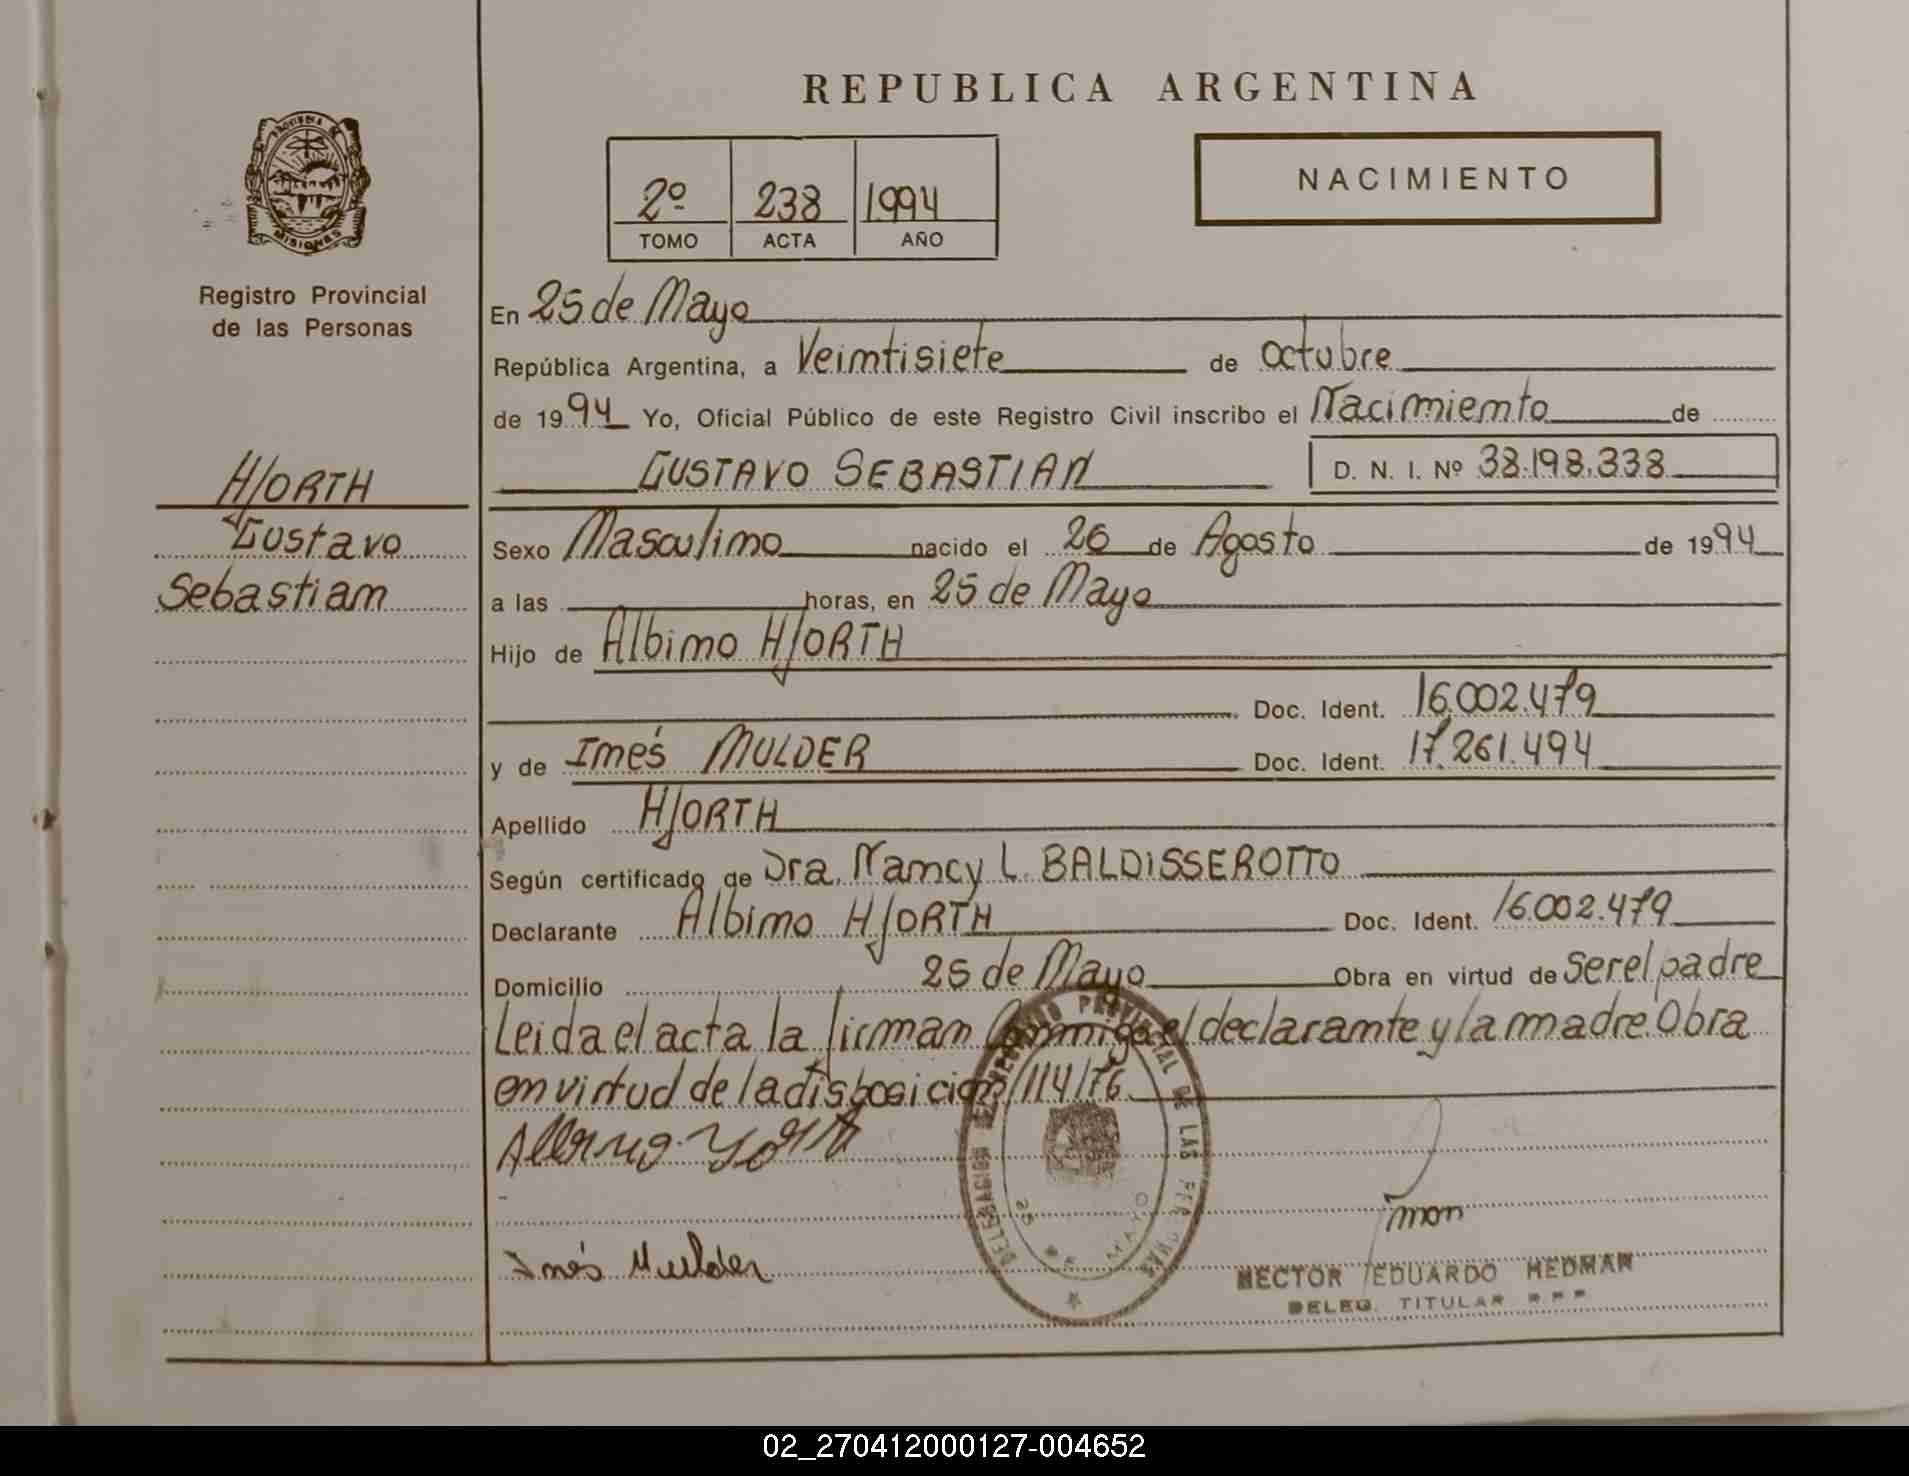 REPUBLICA ARGENTINA
PROVINCIA DE
MISIONES
Registro Provincial
de las Personas
2º 238 1994
TOMO ACTA AÑO
NACIMIENTO
En 25 de Mayo
República Argentina, a Veintisiete de octubre
de 1994 Yo, Oficial Público de este Registro Civil inscribo el Nacimiento de
GUSTAVO SEBASTIAN D. N. I. Nº 38.198.338
HJORTH
Gustavo
Sebastian
Sexo Masculino nacido el 26 de Agosto de 1994
a las horas, en 25 de Mayo
Hijo de Albino HJORTH
Doc. Ident. 16.002.479
y de Inés MULDER Doc. Ident. 17.261.494
Apellido HJORTH
Según certificado de Dra. Nancy L. BALDISSEROTTO
Declarante Albino HJORTH Doc. Ident. 16.002.479
Domicilio 25 de Mayo Obra en virtud de Ser el padre
Leida el acta la firman Conmigo el declarante y la madre. Obra
en virtud de la disposicion 114/76.
DELEGACION DEL REGISTRO PROVINCIAL DE LAS PERSONAS
25 DE MAYO
Inés Mulder
HECTOR EDUARDO HEDMAN
DELEG. TITULAR R P P
02_270412000127-004652